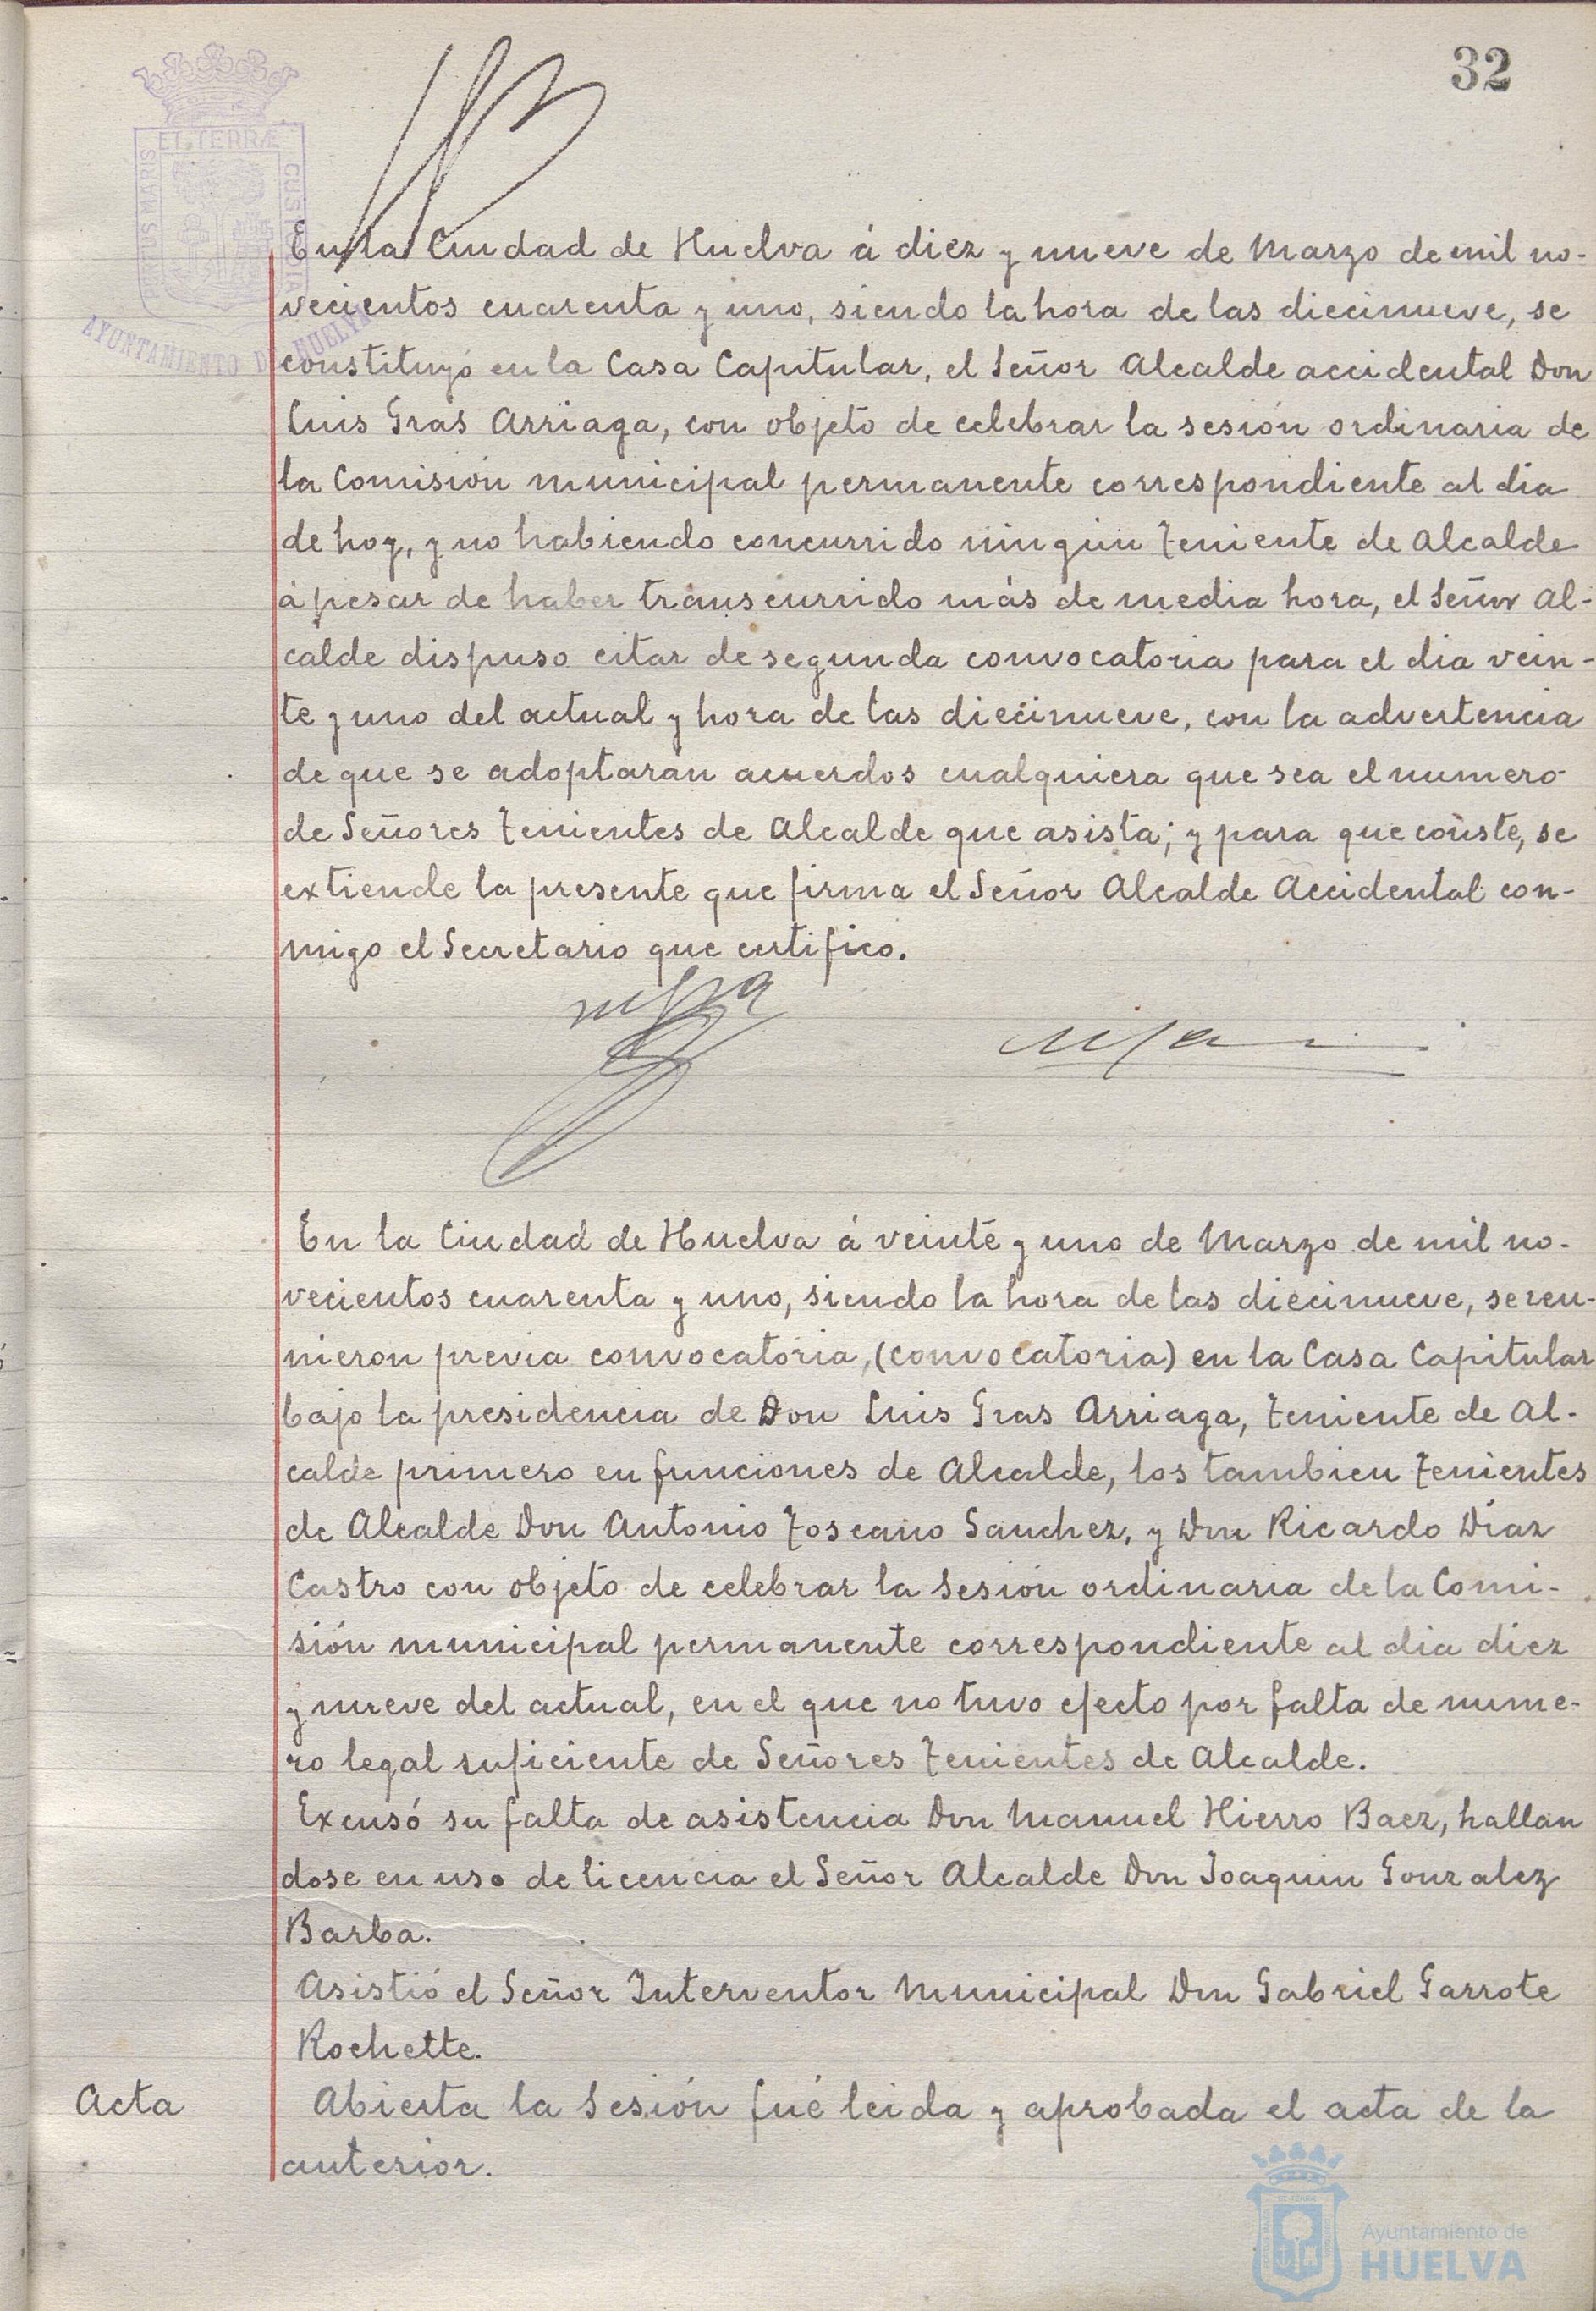 32
ET TERRÆ
PORTUS MARIS
CUSTODIA
AYUNTAMIENTO DE HUELVA
En la Ciudad de Huelva á diez y nueve de Marzo de mil no-
vecientos cuarenta y uno, siendo la hora de las diecinueve, se
constituyó en la Casa Capitular, el Señor Alcalde accidental Don
Luis Gras Arriaga, con objeto de celebrar la sesión ordinaria de
la Comisión municipal permanente correspondiente al dia
de hoy, y no habiendo concurrido ningún Teniente de Alcalde
á pesar de haber transcurrido más de media hora, el Señor Al-
calde dispuso citar de segunda convocatoria para el dia vein-
te y uno del actual y hora de las diecinueve, con la advertencia
de que se adoptarán acuerdos cualquiera que sea el numero
de Señores Tenientes de Alcalde que asista; y para que conste, se
extiende la presente que firma el Señor Alcalde Accidental con-
migo el Secretario que certifico.
En la Ciudad de Huelva á veinte y uno de Marzo de mil no-
vecientos cuarenta y uno, siendo la hora de las diecinueve, se reu-
nieron previa convocatoria, (convocatoria) en la Casa Capitular
bajo la presidencia de Don Luis Gras Arriaga, Teniente de Al-
calde primero en funciones de Alcalde, los tambien Tenientes
de Alcalde Don Antonio Toscano Sanchez, y Don Ricardo Díaz
Castro con objeto de celebrar la Sesión ordinaria de la Comi-
sión municipal permanente correspondiente al dia diez
y nueve del actual, en el que no tuvo efecto por falta de nume-
ro legal suficiente de Señores Tenientes de Alcalde.
Excusó su falta de asistencia Don Manuel Hierro Baez, hallan
dose en uso de licencia el Señor Alcalde Don Joaquin Gonzalez
Barba.
Asistió el Señor Interventor Municipal Don Gabriel Garrote
Rochette.
Acta
Abierta la Sesión fué leida y aprobada el acta de la
anterior.
Ayuntamiento de
HUELVA